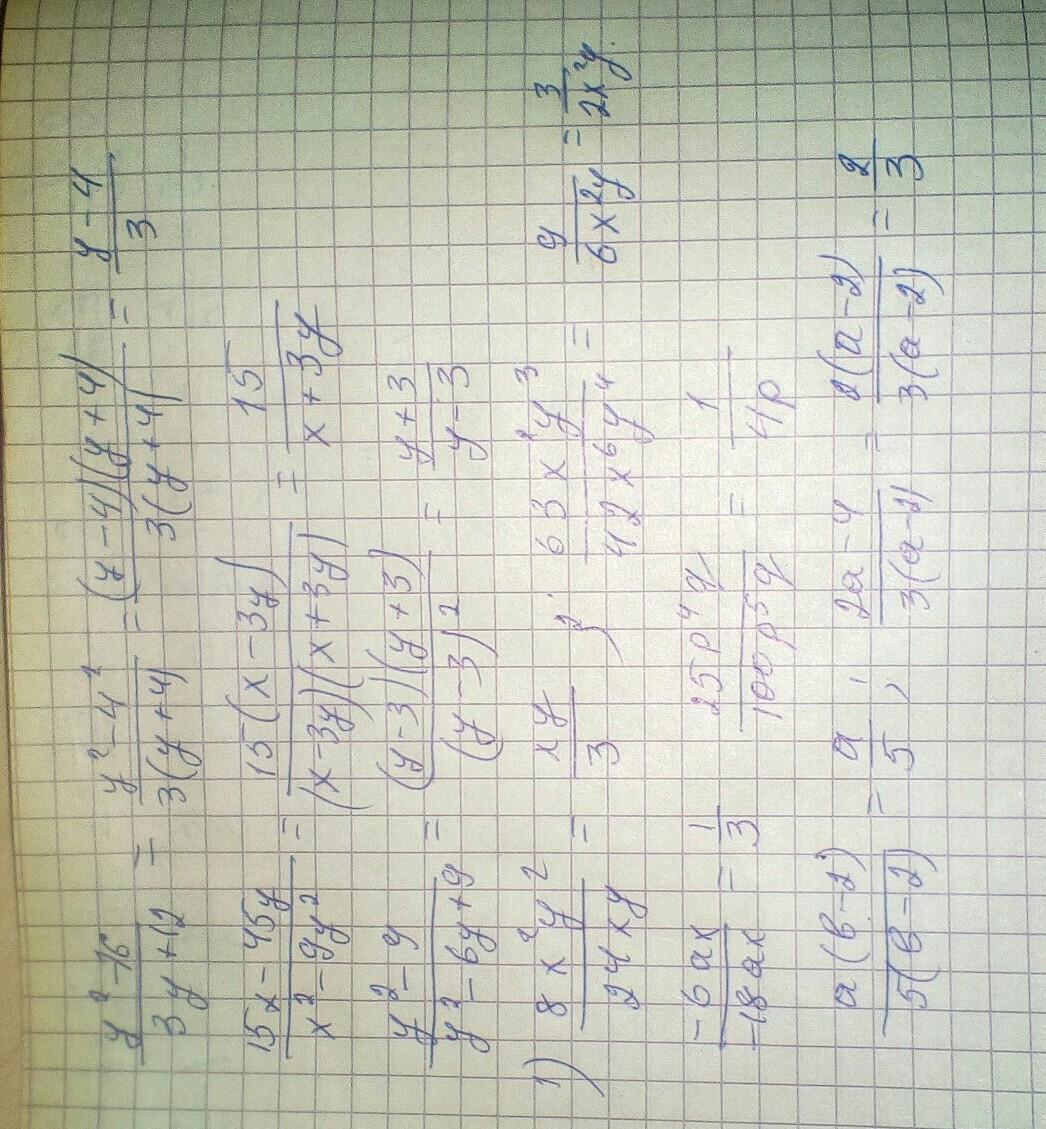 (y² - 16)/(3y + 12) = (y² - 4²)/(3(y + 4)) = ((y - 4)(y + 4))/(3(y + 4)) = (y - 4)/3
(15x - 45y)/(x² - 9y²) = (15(x - 3y))/((x - 3y)(x + 3y)) = 15/(x + 3y)
(y² - 9)/(y² - 6y + 9) = ((y - 3)(y + 3))/((y - 3)²) = (y + 3)/(y - 3)
1) (8x²y²)/(24xy) = (xy)/3 ; (63x²y³)/(42x⁶y⁴) = 9/(6x²y) = 3/(2x²y).
(-6ax)/(-18ax) = 1/3 (25p⁴q)/(100p⁵q) = 1/(4p)
(a(b - 2))/(5(b - 2)) = a/5 ; (2a - 4)/(3(a - 2)) = (2(a - 2))/(3(a - 2)) = 2/3